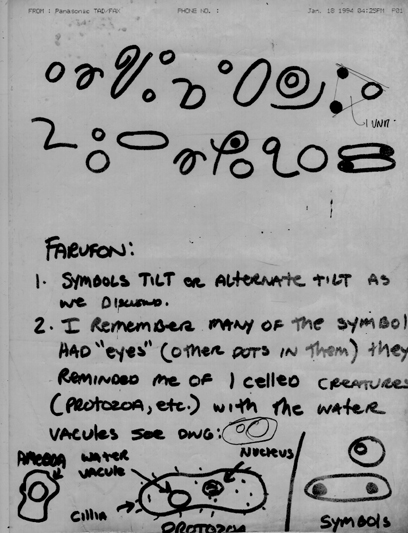 FROM : Panasonic TAD/FAX PHONE NO. : Jan. 10 1994 04:25PM P01
1 UNIT
FARUFON:
1. SYMBOLS TILT OR ALTERNATE TILT AS
WE DISCUSSED.
2. I REMEMBER MANY OF THE SYMBOL
HAD "eyes" (OTHER DOTS IN THEM) they
REMINDED ME OF 1 CELLED CREATURES
(PROTOZOA, ETC.) WITH THE WATER
VACULES SEE DWG:
AMOEBA WATER VACULE NUCLEUS
CILLIA PROTOZOA SYMBOLS